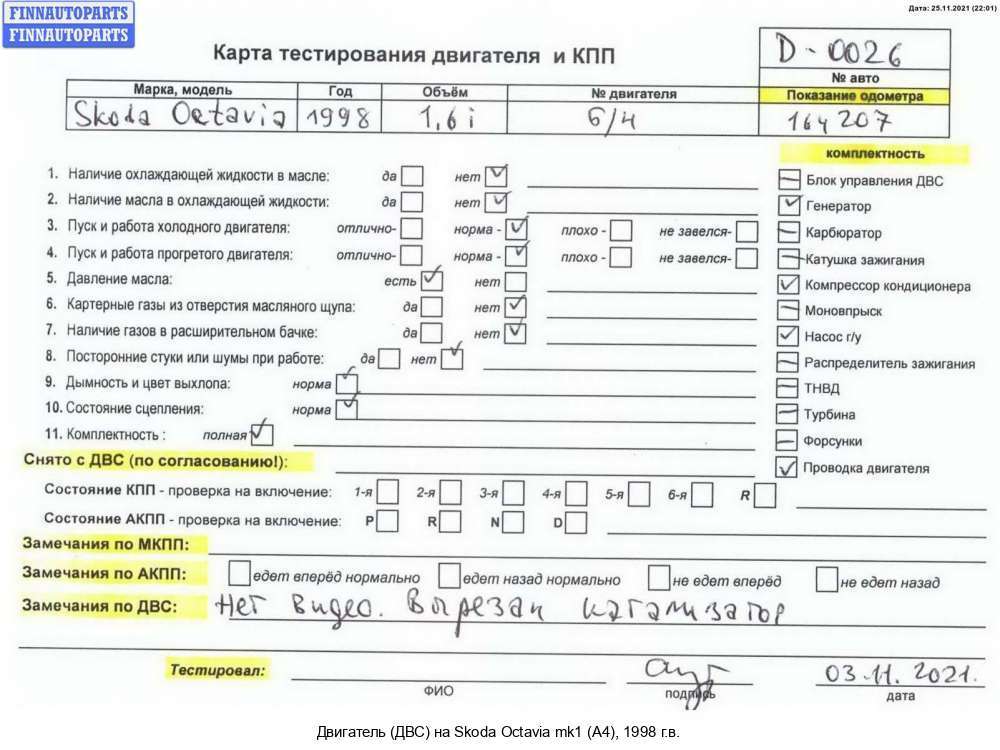 FINNAUTOPARTS
FINNAUTOPARTS
Дата: 25.11.2021 (22:01)
Карта тестирования двигателя и КПП
D-0026
№ авто
Марка, модель Год Объём № двигателя Показание одометра
Skoda Octavia 1998 1,6i 6/4 164207
комплектность
1. Наличие охлаждающей жидкости в масле: да нет
Блок управления ДВС
2. Наличие масла в охлаждающей жидкости: да нет
Генератор
3. Пуск и работа холодного двигателя: отлично- норма - плохо - не завелся-
Карбюратор
4. Пуск и работа прогретого двигателя: отлично- норма - плохо - не завелся-
Катушка зажигания
5. Давление масла: есть нет
Компрессор кондиционера
6. Картерные газы из отверстия масляного щупа: да нет
Моновпрыск
7. Наличие газов в расширительном бачке: да нет
Насос г/у
8. Посторонние стуки или шумы при работе: да нет
Распределитель зажигания
9. Дымность и цвет выхлопа: норма
ТНВД
10. Состояние сцепления: норма
Турбина
11. Комплектность : полная
Форсунки
Снято с ДВС (по согласованию!):
Проводка двигателя
Состояние КПП - проверка на включение: 1-я 2-я 3-я 4-я 5-я 6-я R
Состояние АКПП - проверка на включение: P R N D
Замечания по МКПП:
Замечания по АКПП: едет вперёд нормально едет назад нормально не едет вперёд не едет назад
Замечания по ДВС: Нет видео. Вырезан катализатор
Тестировал: 03.11.2021.
ФИО подпись дата
Двигатель (ДВС) на Skoda Octavia mk1 (A4), 1998 г.в.